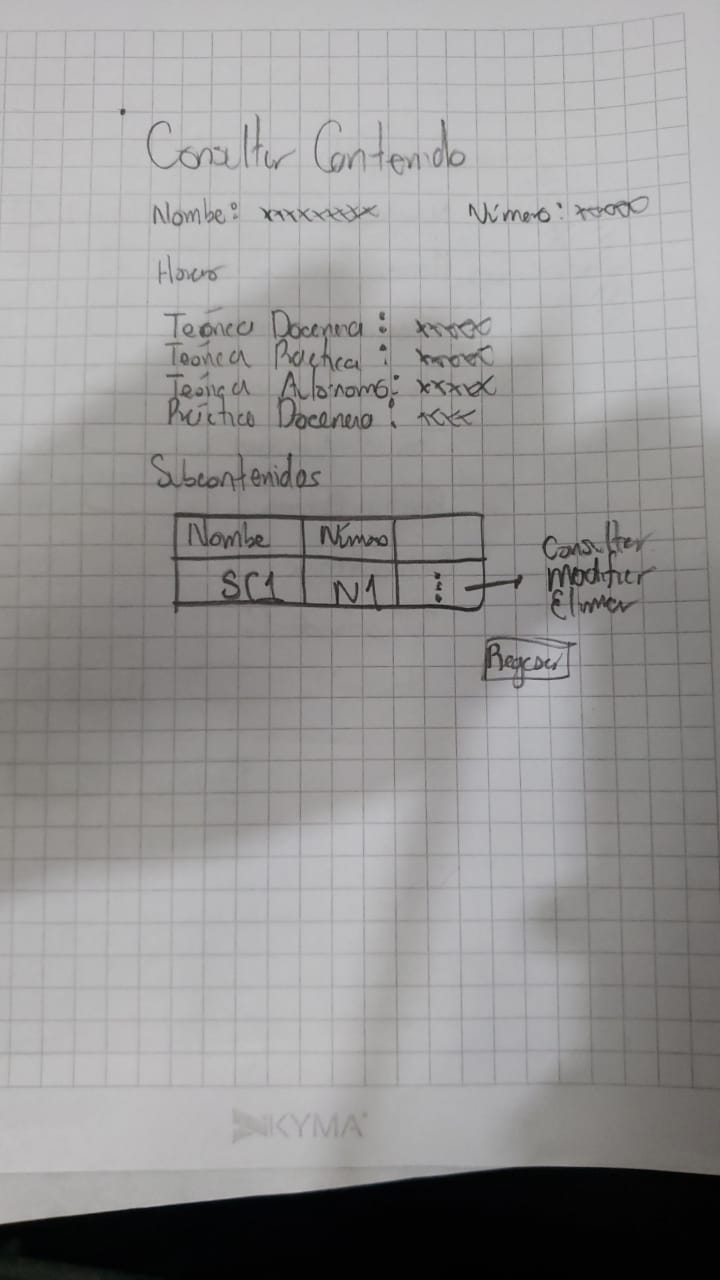 Consulter Contenido
Nombe: xxxxxxxx Número: xxxxx
Horas
Teórica Docencia: xxxxx
Teórica Práctica: xxxxx
Teórica Autónomo: xxxxx
Práctico Docencia: xxxx
Subcontenidos
Nombe Número
SC1 N1 ⋮ → Consulter
Modifier
Elimer
Regesar
KYMA